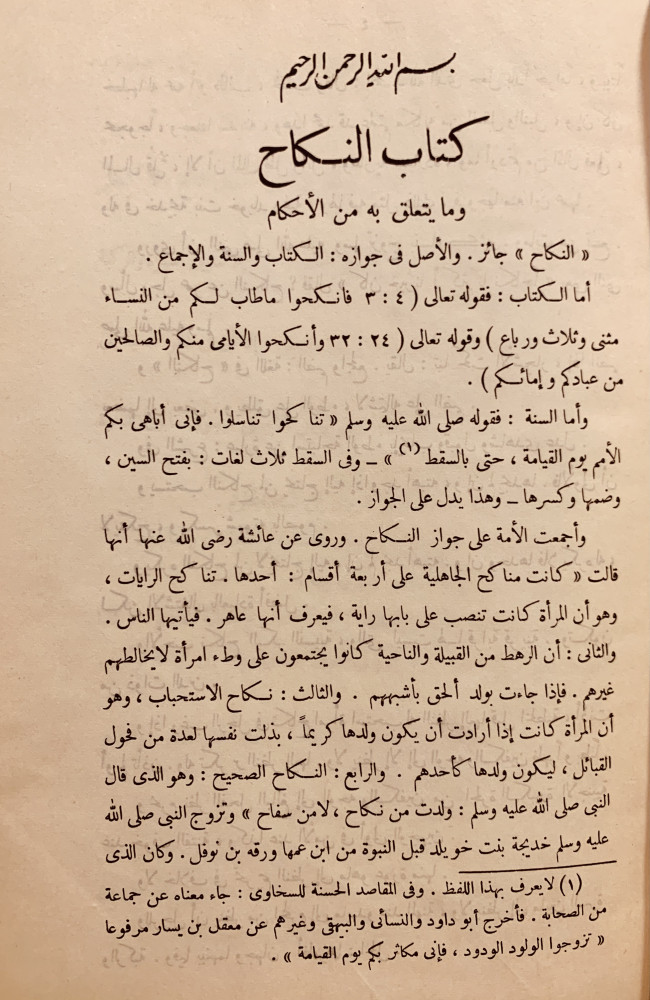 بسم الله الرحمن الرحيم
كتاب النكاح
وما يتعلق به من الأحكام
« النكاح » جائز . والأصل فى جوازه : الكتاب والسنة والإجماع .
أما الكتاب : فقوله تعالى ( ٤ : ٣ فانكحوا ماطاب لكم من النساء
مثنى وثلاث ورباع ) وقوله تعالى ( ٢٤ : ٣٢ وأنكحوا الأيامى منكم والصالحين
من عبادكم وإمائكم ) .
وأما السنة : فقوله صلى الله عليه وسلم « تناكحوا تناسلوا . فإنى أباهى بكم
الأمم يوم القيامة ، حتى بالسقط (١) » ــ وفى السقط ثلاث لغات : بفتح السين ،
وضمها وكسرها ــ وهذا يدل على الجواز .
وأجمعت الأمة على جواز النكاح . وروى عن عائشة رضى الله عنها أنها
قالت « كانت مناكح الجاهلية على أربعة أقسام : أحدها . تناكح الرايات ،
وهو أن المرأة كانت تنصب على بابها راية ، فيعرف أنها عاهر . فيأتيها الناس .
والثانى : أن الرهط من القبيلة والناحية كانوا يجتمعون على وطء امرأة لايخالطهم
غيرهم . فإذا جاءت بولد ألحق بأشبههم . والثالث : نكاح الاستحباب ، وهو
أن المرأة كانت إذا أرادت أن يكون ولدها كريماً ، بذلت نفسها لعدة من فحول
القبائل ، ليكون ولدها كأحدهم . والرابع : النكاح الصحيح : وهو الذى قال
النبى صلى الله عليه وسلم : ولدت من نكاح ، لامن سفاح » وتزوج النبى صلى الله
عليه وسلم خديجة بنت خويلد قبل النبوة من ابن عمها ورقه بن نوفل . وكان الذى
(١) لايعرف بهذا اللفظ . وفى المقاصد الحسنة للسخاوى : جاء معناه عن جماعة
من الصحابة . فأخرج أبو داود والنسائى والبيهقى وغيرهم عن معقل بن يسار مرفوعا
« تزوجوا الولود الودود ، فإنى مكاثر بكم يوم القيامة » .